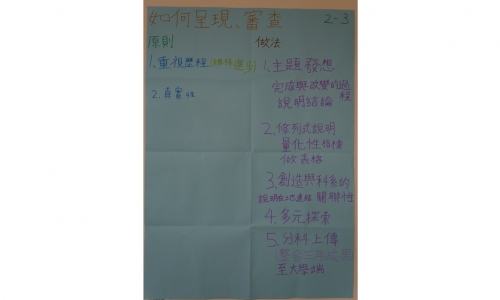 如何呈現、審查
2-3
原則
1. 重視歷程
2. 真實性
做法
1. 主題發想
完成與改變的過程
說明結論
2. 條列式說明
量化,性
做表格
3. 創造與科系的
關聯性
4. 多元探索
5. 分科上傳
至大學端